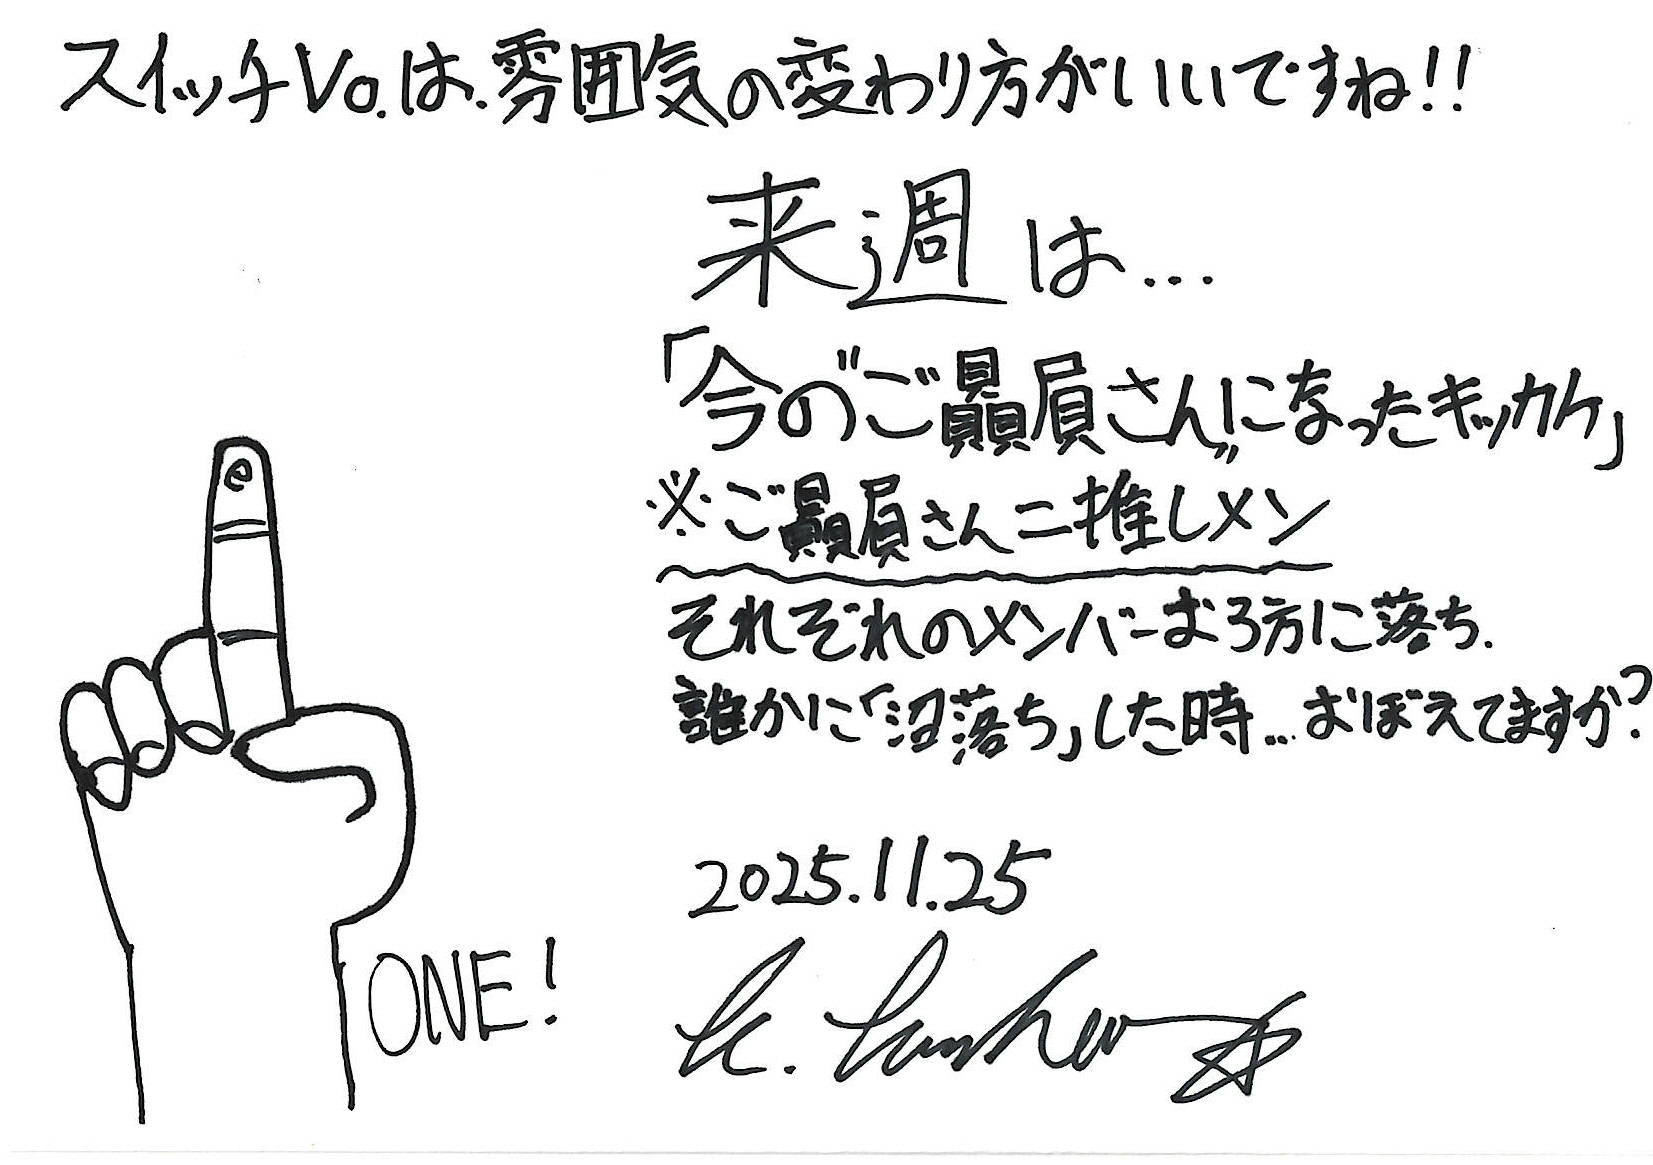 スイッチVo.は、雰囲気の変わり方がいいですね!!
来週は…
「今の"ご贔屓さん"になったキッカケ」
※ご贔屓さん=推しメン
それぞれのメンバーおろ方に落ち、
誰かに「沼落ち」した時…おぼえてますか?
2025.11.25
ONE!